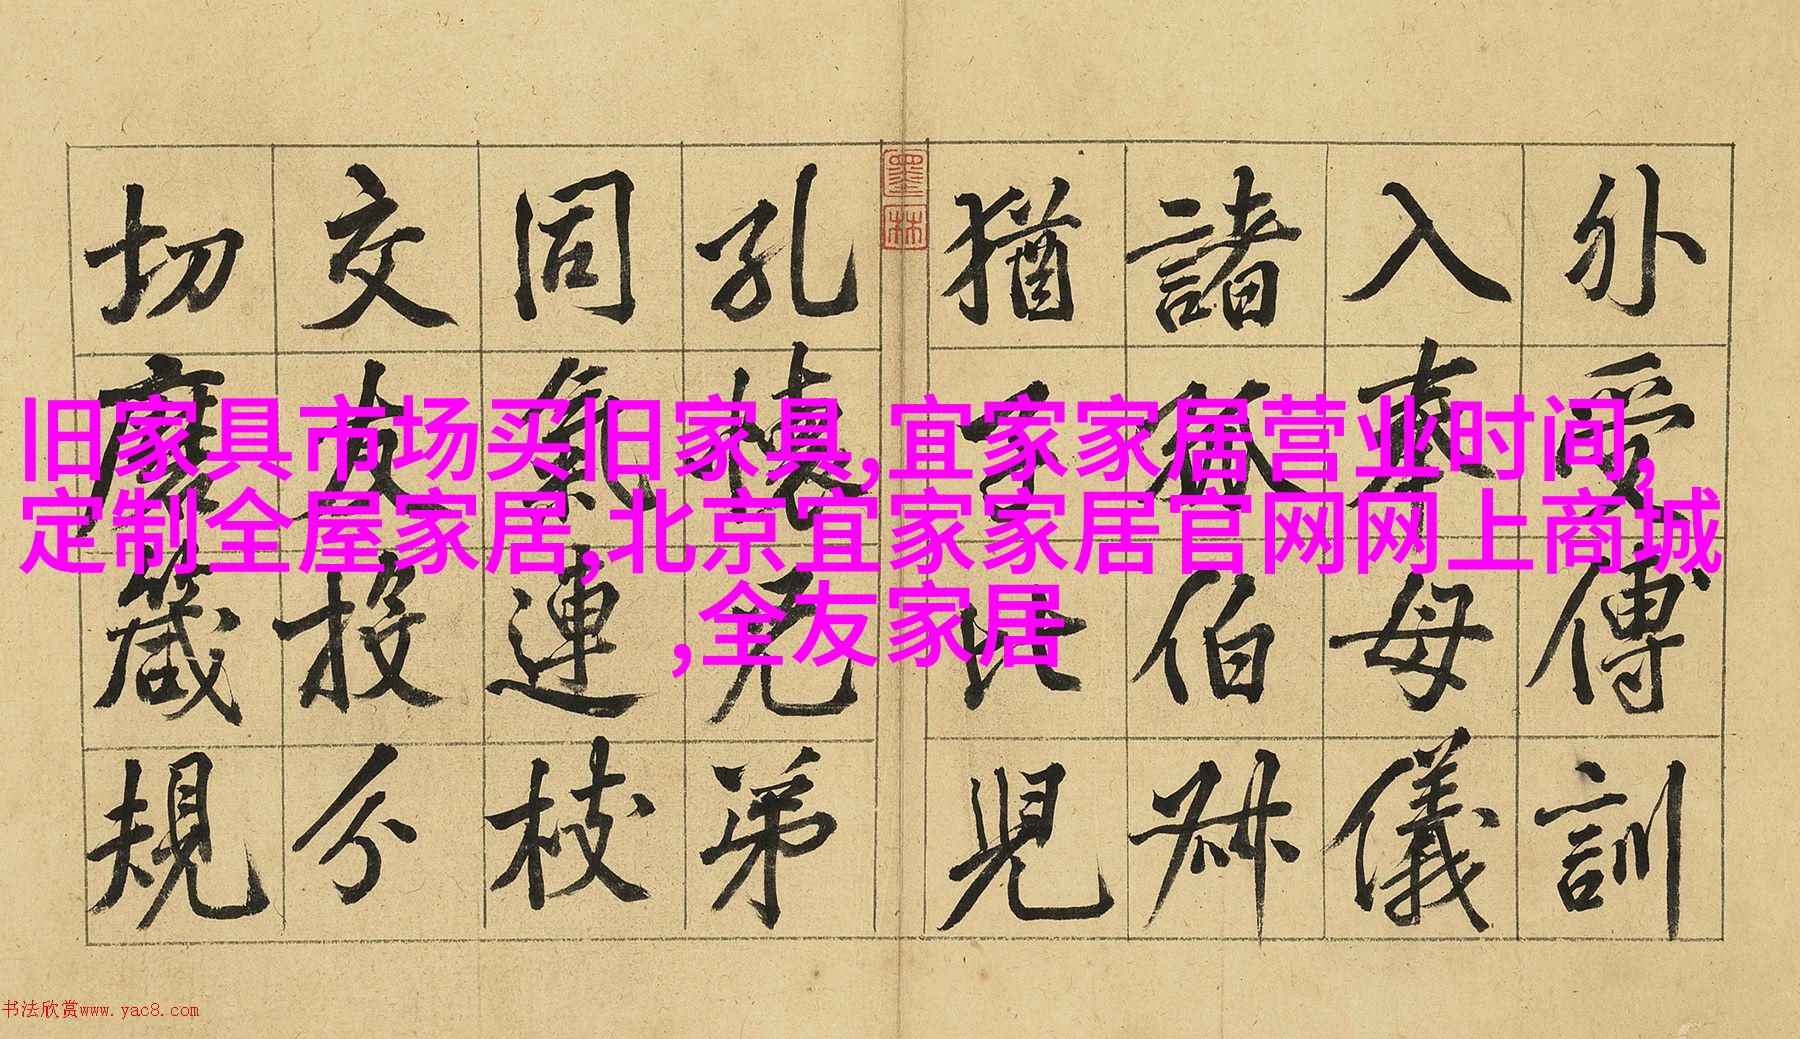 外受傅訓
入奉母儀
諸姑伯叔
猶子比兒
墨林
孔懷兄弟
同氣連枝
交友投分
切磨箴規
旧家具市场买旧家具,宜家家居营业时间,
定制全屋家居,北京宜家家居官网网上商城
,全友家居
书法欣赏www.yac8.com